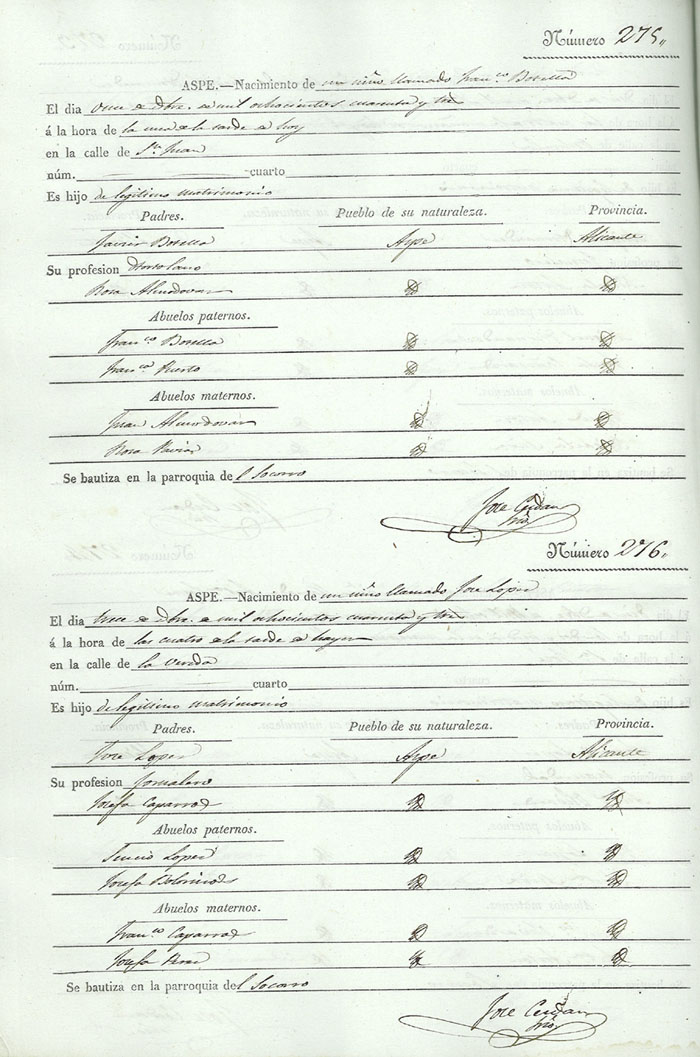 Número 275,,
ASPE.—Nacimiento de un niño llamado Fran.co Botella
El dia once de Dbre. de mil ochocientos cuarenta y tres
á la hora de la una de la tarde de hoy
en la calle de S.n Juan
núm. cuarto
Es hijo de legitimo matrimonio
Padres. Pueblo de su naturaleza. Provincia.
Javier Botella Aspe Alicante
Su profesion Hortolano
Rosa Almodovar
Abuelos paternos.
Fran.co Botella
Fran.ca Puerto
Abuelos maternos.
Juan Almodovar
Rosa
Se bautiza en la parroquia del Socorro
Jose Cerdan
Srio
Número 276,,
ASPE.—Nacimiento de un niño llamado Jose Lopez
El dia trece de Dbre. de mil ochocientos cuarenta y tres
á la hora de las cuatro de la tarde de hayer
en la calle de la
núm. cuarto
Es hijo de legitimo matrimonio
Padres. Pueblo de su naturaleza. Provincia.
Jose Lopez Aspe Alicante
Su profesion Jornalero
Josefa Caparros
Abuelos paternos.
Lopez
Josefa
Abuelos maternos.
Fran.co Caparros
Josefa
Se bautiza en la parroquia del Socorro
Jose Cerdan
Srio